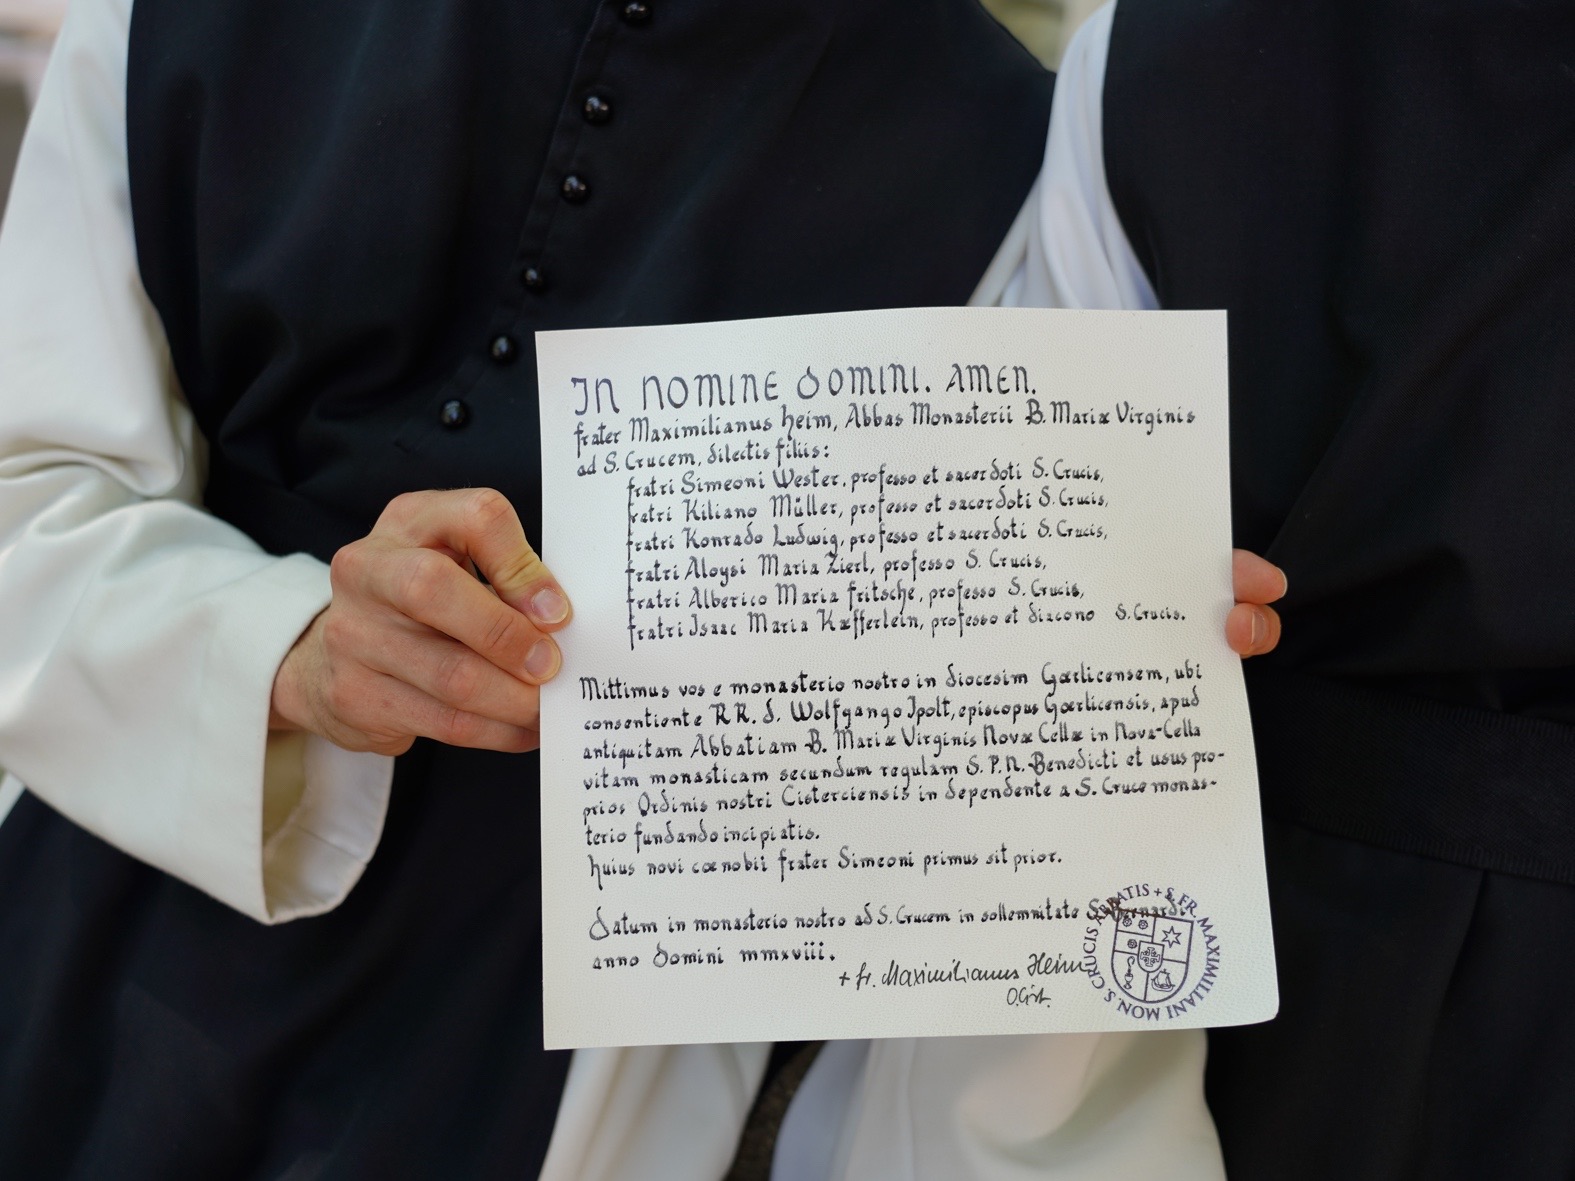 IN NOMINE DOMINI. AMEN.
frater Maximilianus Heim, Abbas Monasterii B. Mariæ Virginis
ad S. Crucem, dilectis filiis:
fratri Simeoni Wester, professo et sacerdoti S. Crucis,
fratri Kiliano Müller, professo et sacerdoti S. Crucis,
fratri Konrado Ludwig, professo et sacerdoti S. Crucis,
fratri Aloysi Maria Zierl, professo S. Crucis,
fratri Alberico Maria Fritsche, professo S. Crucis,
fratri Isaac Maria Kæfferlein, professo et diacono S. Crucis.
Mittimus vos e monasterio nostro in diocesim Gœrlicensem, ubi
consentiente RR. d. Wolfgango Ipolt, episcopus Gœrlicensis, apud
antiquitam Abbatiam B. Mariæ Virginis Novæ Cellæ in Nova-Cella
vitam monasticam secundum regulam S. P. N. Benedicti et usus pro-
prios Ordinis nostri Cisterciensis in dependente a S. Cruce monas-
terio fundando incipiatis.
Huius novi cœnobii frater Simeoni primus sit prior.
Datum in monasterio nostro ad S. Crucem in sollemnitate S. Bernardi.
anno Domini mmxviii.
+ fr. Maximilianus Heim
O.Cist.
+ S. FR. MAXIMILIANI MON. S. CRUCIS ABBATIS